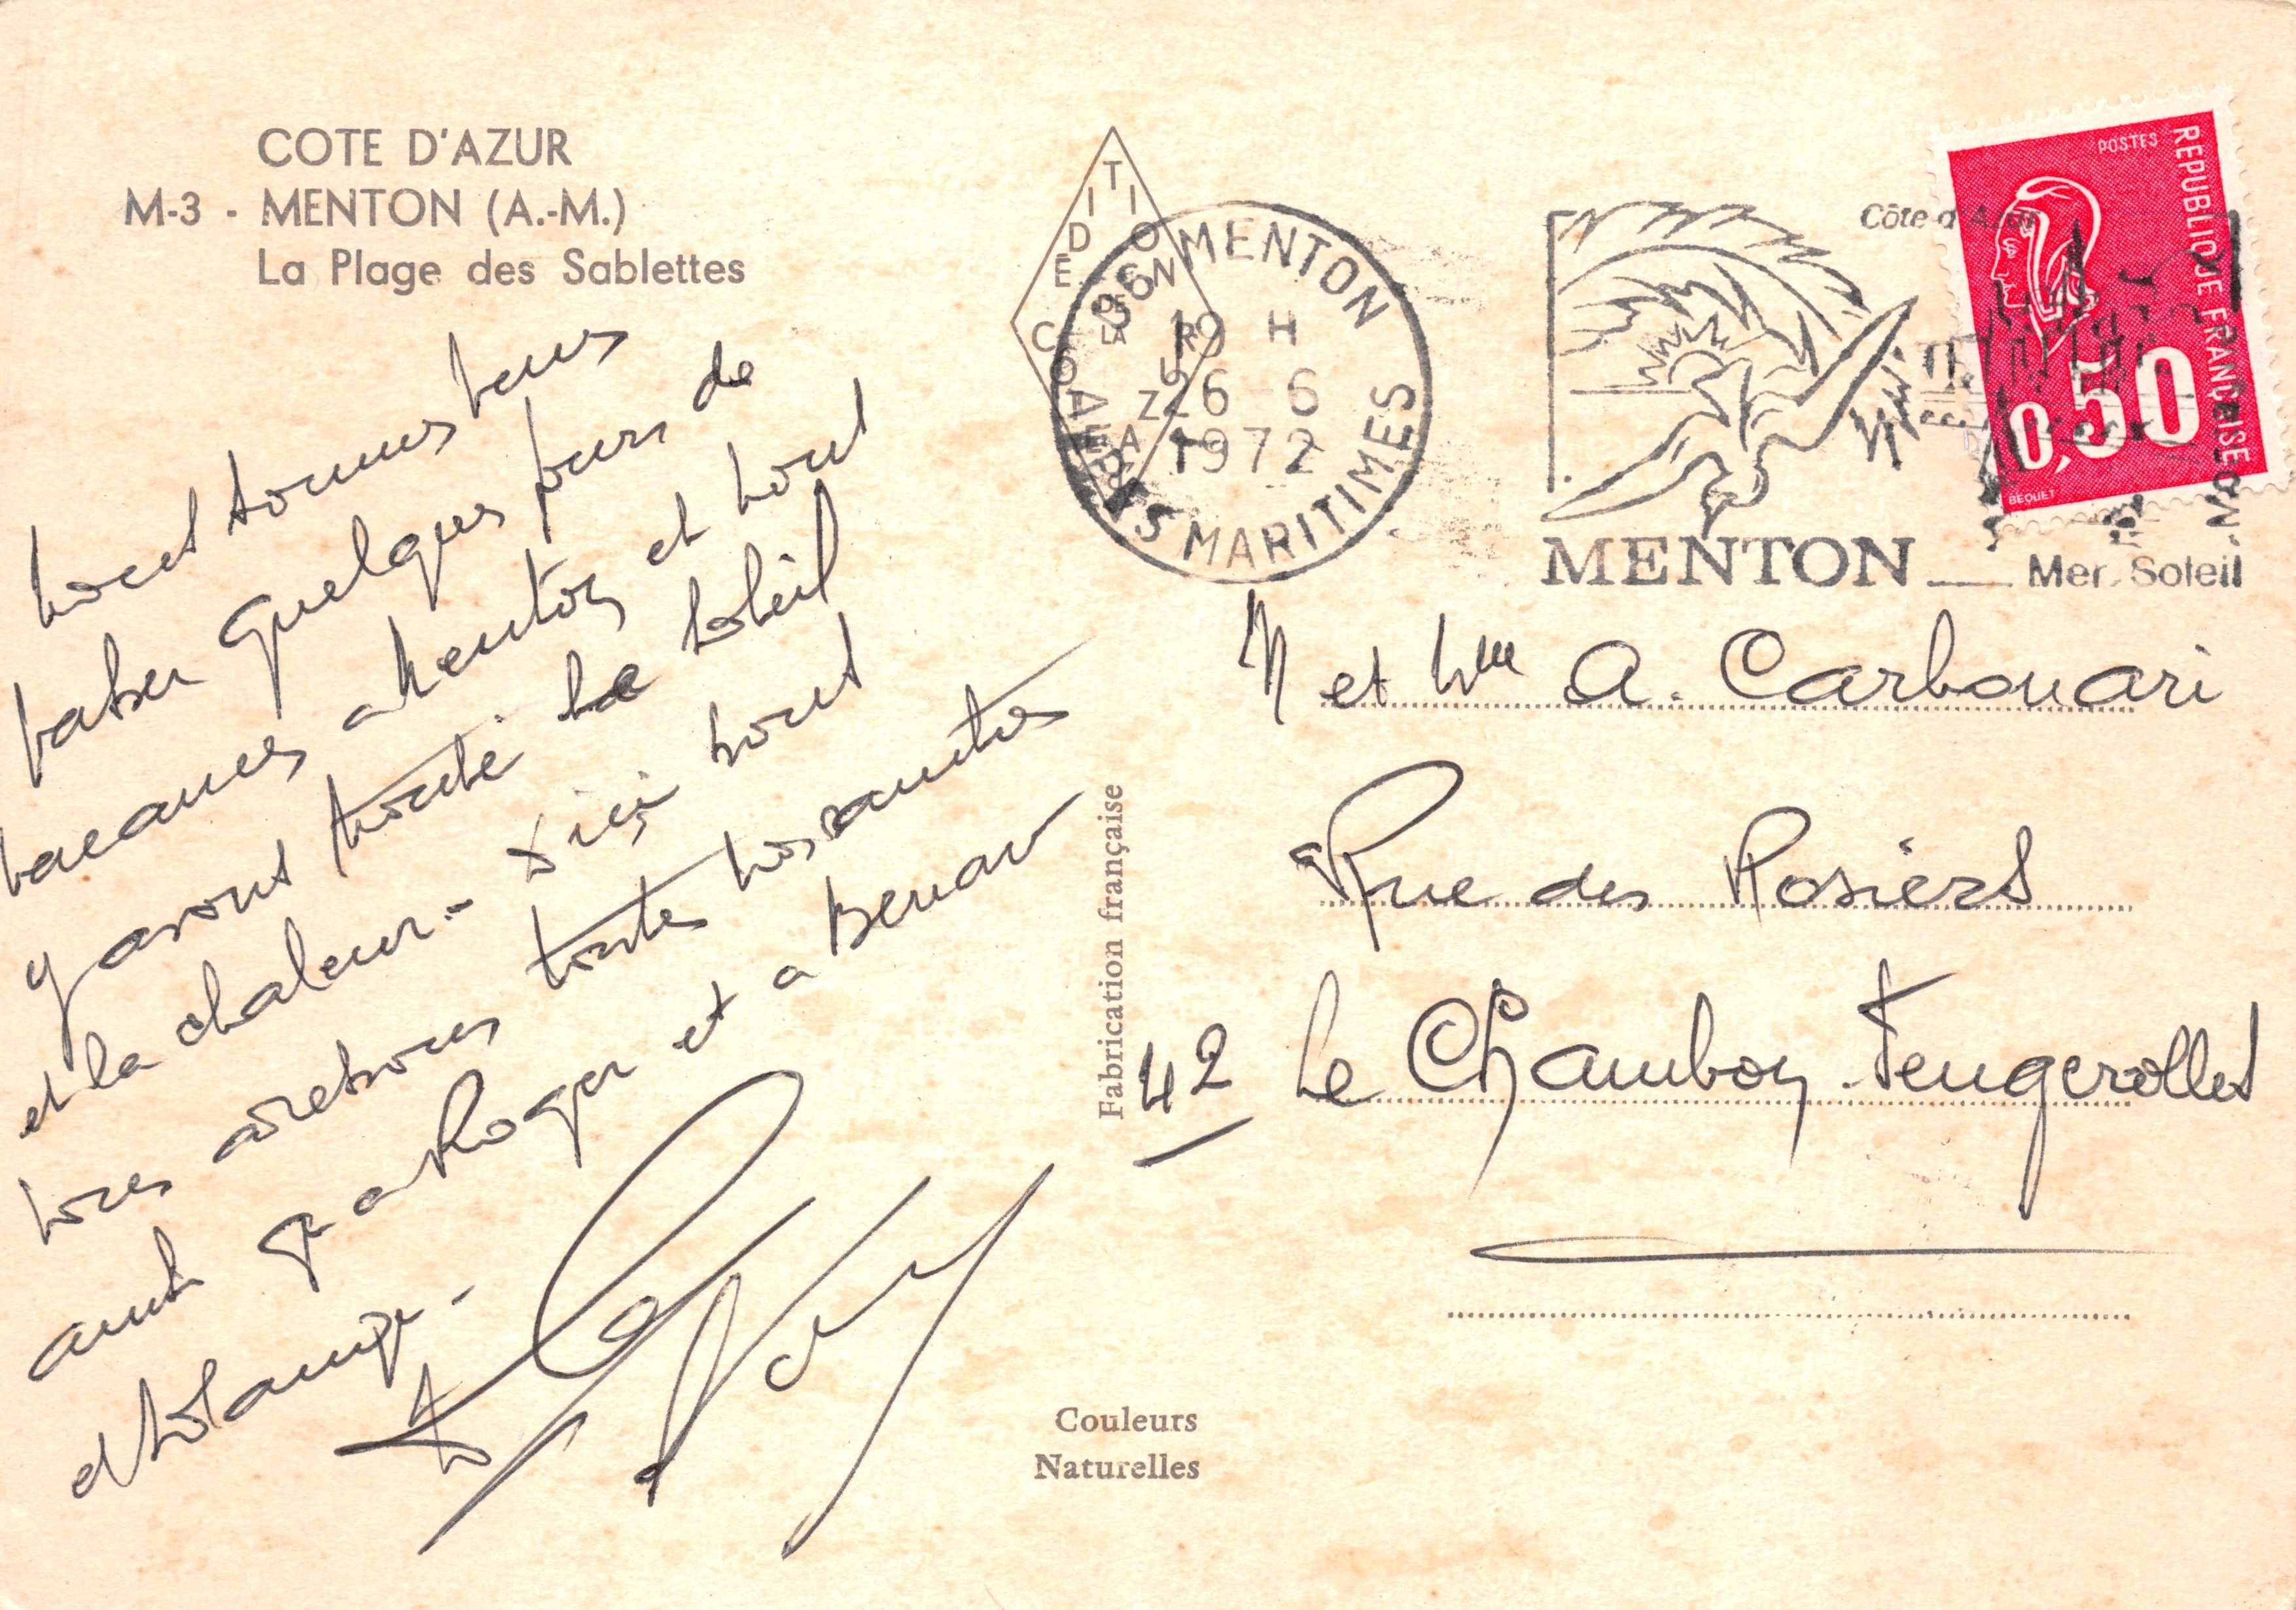 COTE D'AZUR
M-3 - MENTON (A.-M.)
La Plage des Sablettes
EDITION
DE
LA
COTE
D'AZUR
06 MENTON
19 H
26-6
1972
ALPES MARITIMES
Côte d'Azur
MENTON
Mer, Soleil
POSTES
REPUBLIQUE FRANÇAISE
0,50
BEQUET
nous sommes venus
passer quelques jours de
vacances a Menton et nous
y avons trouvé le soleil
et la chaleur. - D'ici nous
vous adressons toutes nos amitiés
ainsi qu a Roger et a
et Solange -
M et Mme A. Carbonari
Rue des Rosiers
42 Le Chambon-Feugerolles
Fabrication française
Couleurs
Naturelles